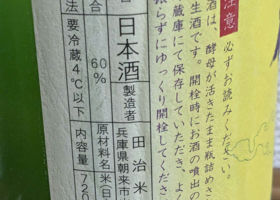 注意
必ずお読みください。
酒は、酵母が活きたまま瓶詰めさ
生酒です。開栓時にお酒の噴出の
蔵庫にて保存していただき、よく
振らずにゆっくり開栓してくださ
日本酒
製造者
田治米
兵庫県朝来市
合
60%
原材料名
米(日
法
要冷蔵4℃以下
内容量
720